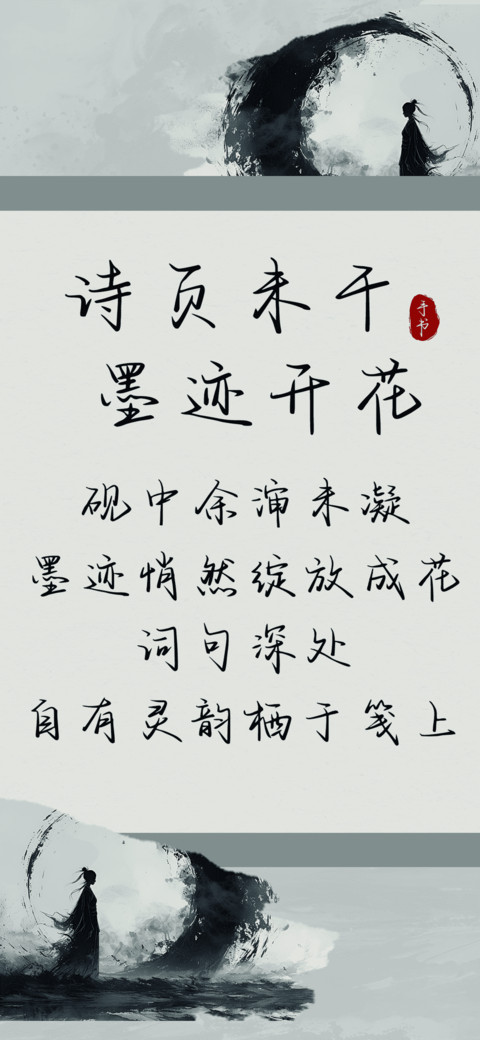 诗页未干
手书
墨迹开花
砚中余渖未凝
墨迹悄然绽放成花
词句深处
自有灵韵栖于笺上